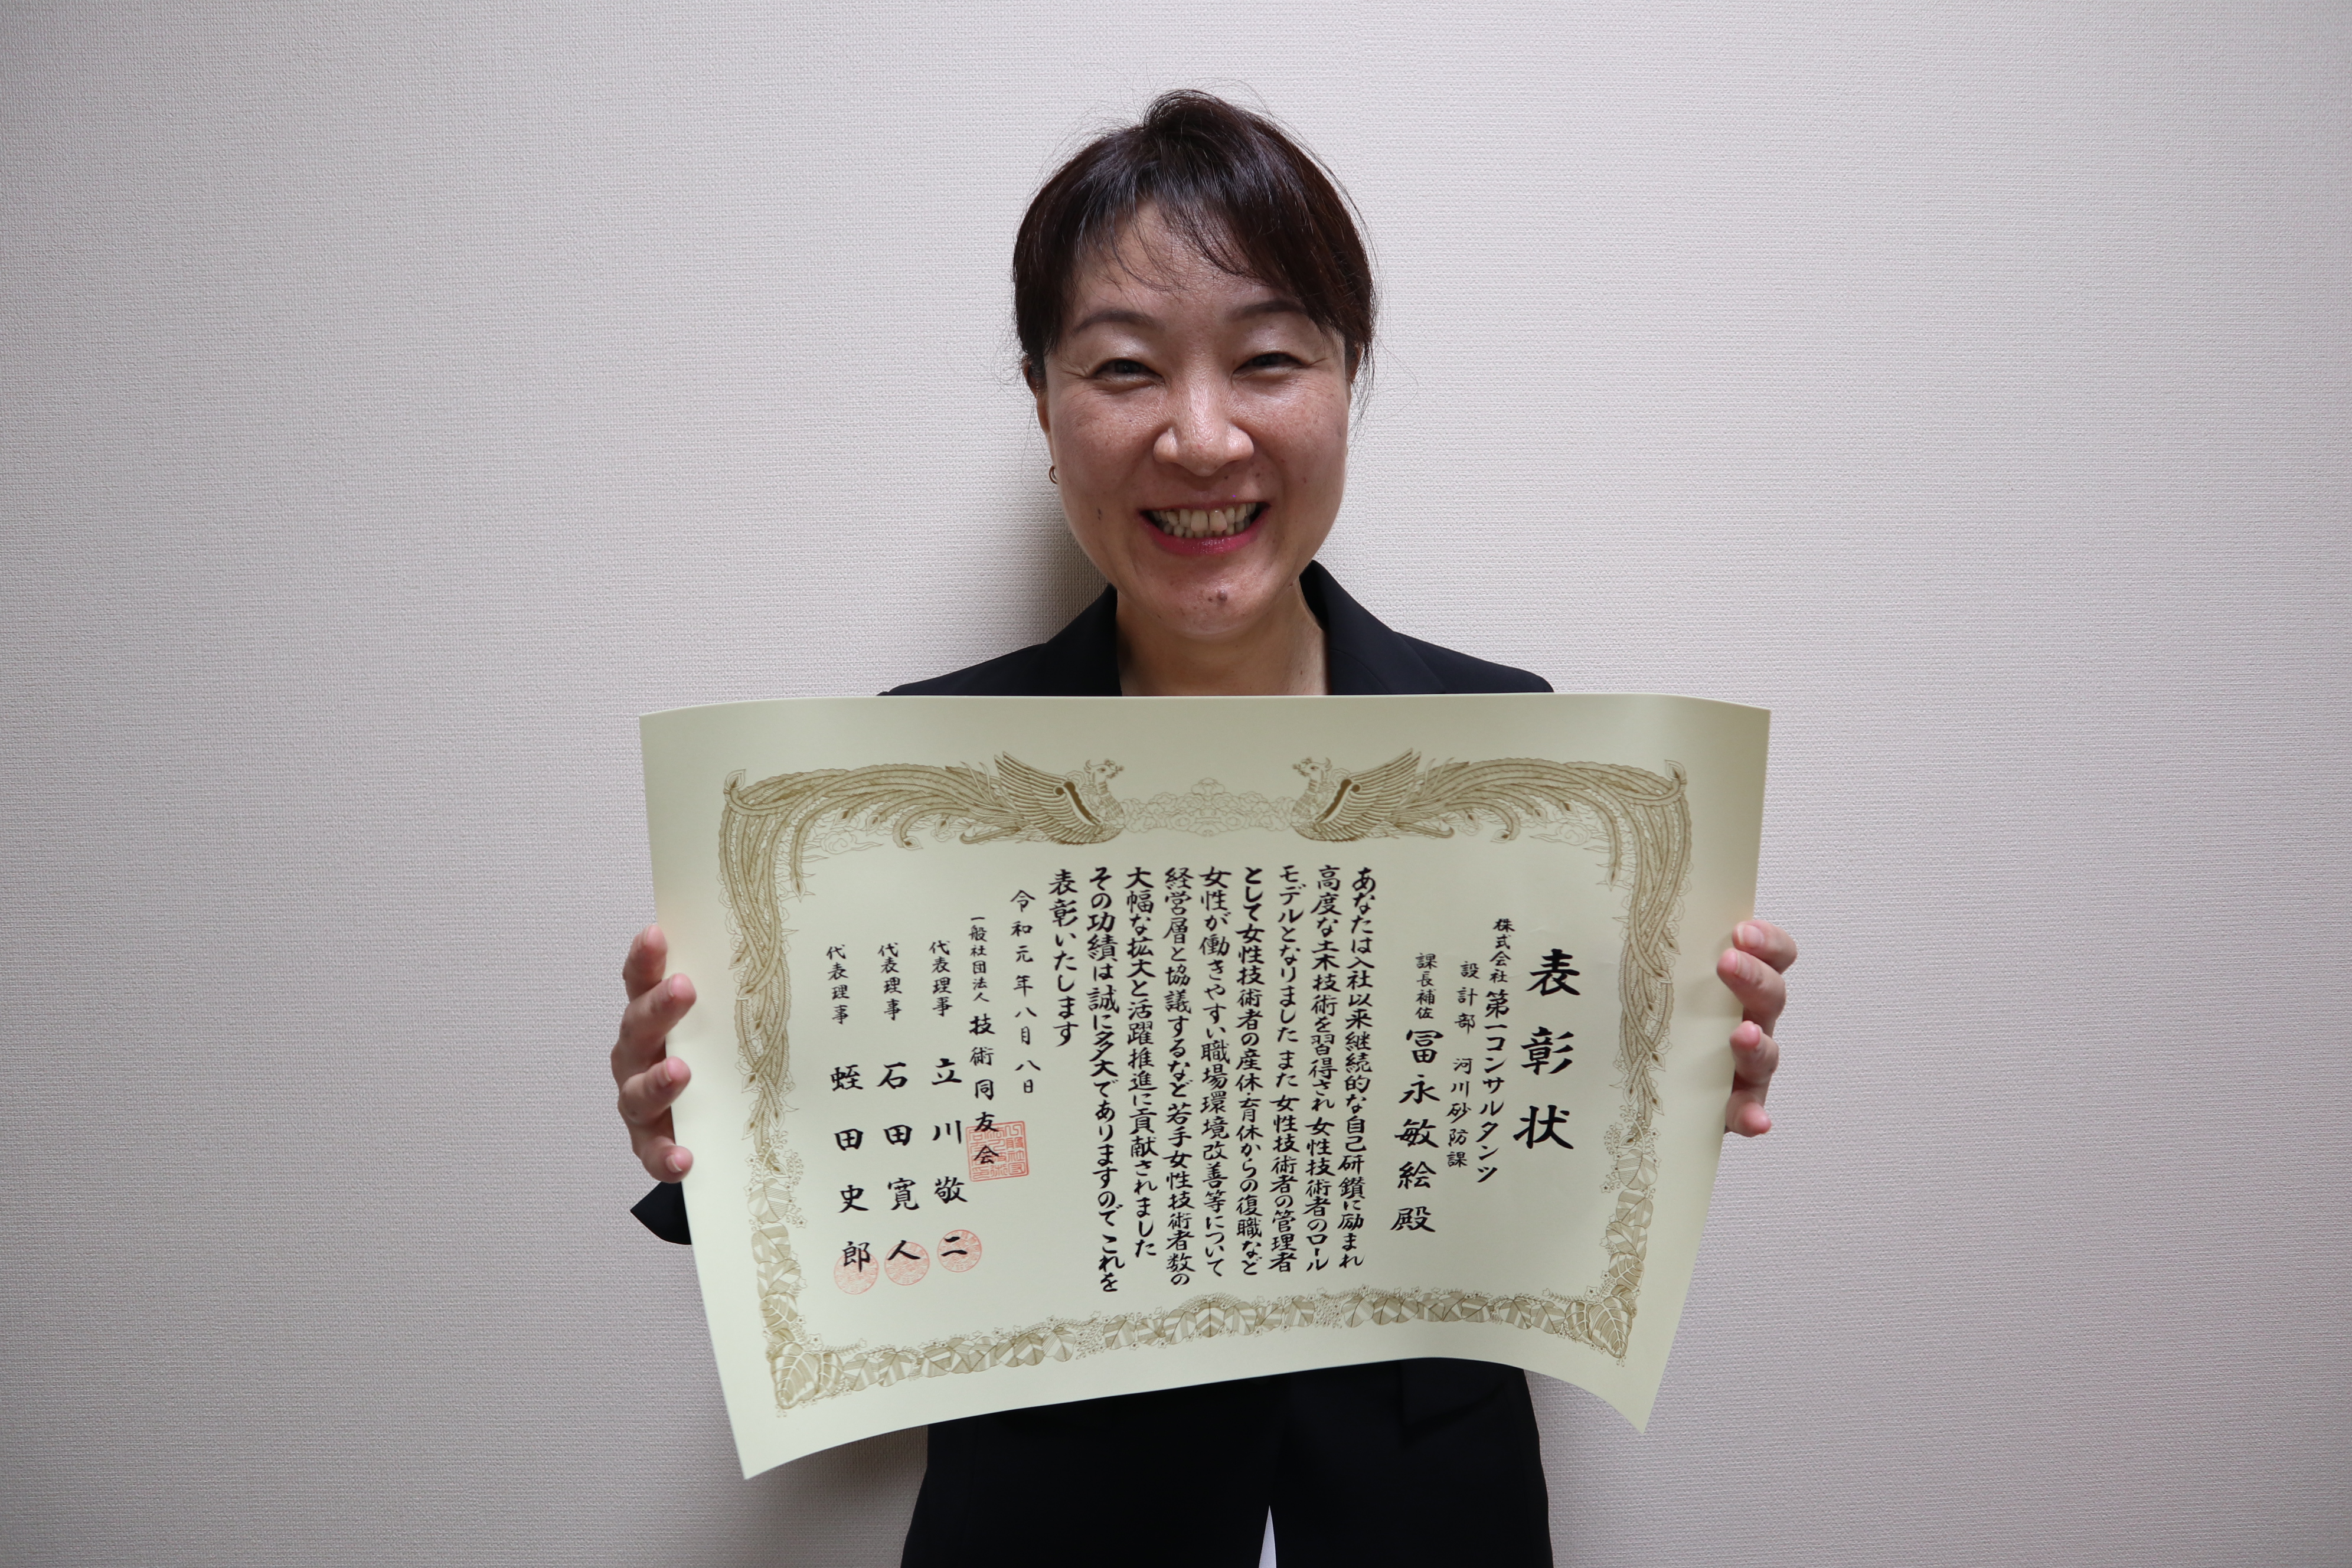 表彰状
株式会社 第一コンサルタンツ
設計部 河川砂防課
課長補佐 冨永敏絵殿
あなたは入社以来継続的な自己研鑽に励まれ
高度な土木技術を習得され 女性技術者のロール
モデルとなりました また 女性技術者の管理者
として女性技術者の産休・育休からの復職など
女性が働きやすい職場環境改善等について
経営層と協議するなど若手女性技術者数の
大幅な拡大と活躍推進に貢献されました
その功績は誠に多大でありますので これを
表彰いたします
令和元年八月八日
一般社団法人 技術同友会
代表理事 立川敬二
代表理事 石田寛人
代表理事 蛭田史郎